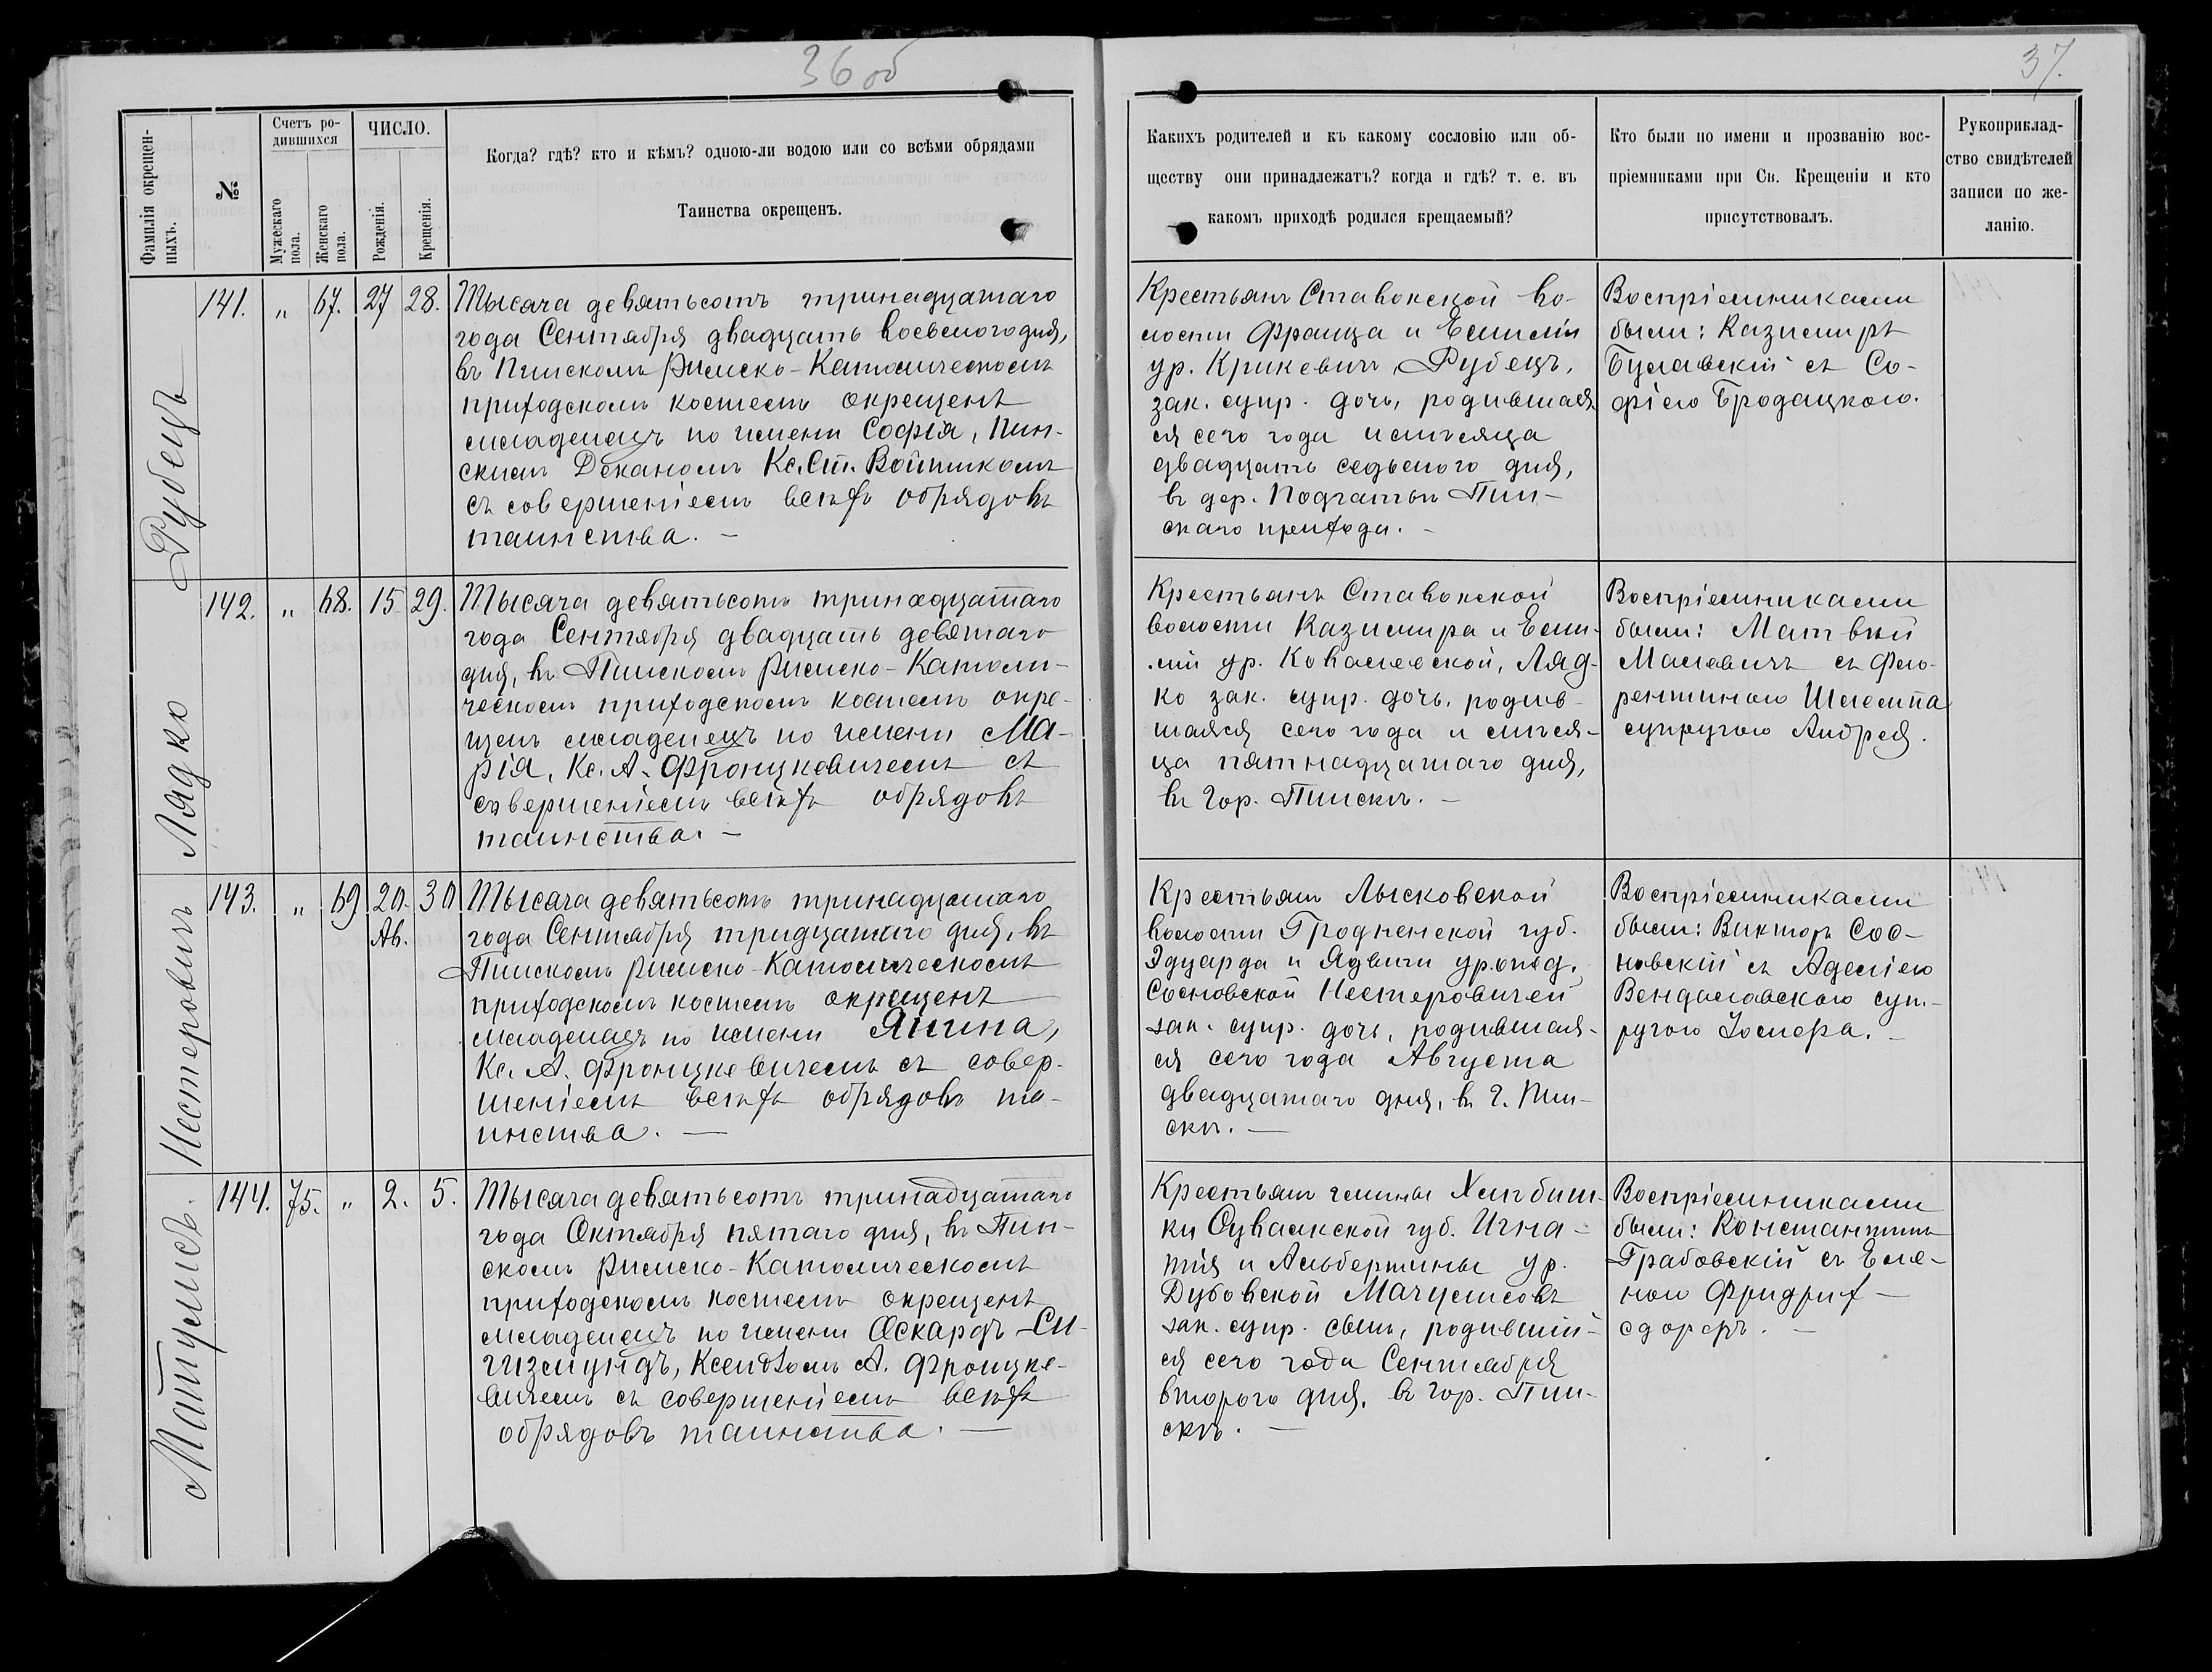 36 об
37.
Фамилія окрещен-
ныхъ.
№
Счетъ ро-
дившихся
Мужескаго
пола.
Женскаго
пола.
ЧИСЛО.
Рожденія.
Крещенія.
Когда? гдѣ? кто и кѣмъ? одною-ли водою или со всѣми обрядами
Таинства окрещенъ.
Какихъ родителей и къ какому сословію или об-
ществу они принадлежатъ? когда и гдѣ? т. е. въ
какомъ приходѣ родился крещаемый?
Кто были по имени и прозванію вос-
пріемниками при Св. Крещеніи и кто
присутствовалъ.
Рукоприклад-
ство свидѣтелей
записи по же-
ланію.
Рубецъ
141. " 67. 27 28.
Тысяча девятьсотъ тринадцатаго
года Сентября двадцать восьмого дня,
въ Пинскомъ Римско-Католическомъ
приходскомъ костелѣ окрещенъ
младенецъ по имени Софія, Пин-
скимъ Деканомъ Кс. Ст. Войтикомъ
съ совершеніемъ всѣхъ обрядовъ
таинства. —
Крестьянъ Ставокской во-
лости Франца и Емиліи
ур. Крикевичъ, Рубецъ,
зак. супр. дочь, родившая
ся сего года и мѣсяца
двадцать седьмого дня,
въ дер. Подгатьи Пин-
скаго прихода. —
Воспріемниками
были: Казимиръ
Булавскій съ Со-
фіею Бродацкою.
Лядко
142. " 68. 15 29.
Тысяча девятьсотъ тринадцатаго
года Сентября двадцать девятаго
дня, въ Пинскомъ Римско-Католи-
ческомъ приходскомъ костелѣ окре-
щенъ младенецъ по имени Ма-
рія, Кс. А. Фронцкевичемъ съ
съвершеніемъ всѣхъ обрядовъ
таинства. —
Крестьянъ Ставокской
волости Казимира и Еми-
ліи ур. Ковалевской, Ляд-
ко зак. супр. дочь, родив-
шаяся сего года и мѣся-
ца пятнадцатаго дня,
въ гор. Пинскѣ. —
Воспріемниками
были: Матвѣй
Малевичъ съ Фло-
рентиною
супругою Андрея.
Нестеровичъ
143. " 69 20. 30
Ав.
Тысяча девятьсотъ тринадцатаго
года Сентября тридцатаго дня, въ
Пинскомъ Римско-Католическомъ
приходскомъ костелѣ окрещенъ
младенецъ по имени Янина,
Кс. А. Фронцкевичемъ съ совер-
шеніемъ всѣхъ обрядовъ та-
инства. —
Крестьянъ Лысковской
волости Гродненской губ.
Эдуарда и Ядвиги урожд.
Сосновской Нестеровичей
зак. супр. дочь, родившая-
ся сего года Августа
двадцатаго дня, въ г. Пин-
скѣ. —
Воспріемниками
были: Викторъ Сос-
новскій съ Аделіею
Вендаловскою суп-
ругою Іосифа. —
Матулисъ.
144. 75. " 2. 5.
Тысяча девятьсотъ тринадцатаго
года Октября пятаго дня, въ Пин-
скомъ Римско-Католическомъ
приходскомъ костелѣ окрещенъ
младенецъ по имени Оскардъ-Си-
гизмундъ, Ксендзомъ А. Фронцке-
вичемъ съ совершеніемъ всѣхъ
обрядовъ таинства. —
Крестьянъ гмины Хлѣбиш-
ки Сувалкской губ. Игна-
тія и Альбертины ур.
Дубовской Матулисовъ
зак. супр. сынъ, родившій-
ся сего года Сентября
второго дня, въ гор. Пин-
скѣ. —
Воспріемниками
были: Константинъ
Грабовскій съ Еле-
ною Фридрих-
сдорфъ. —